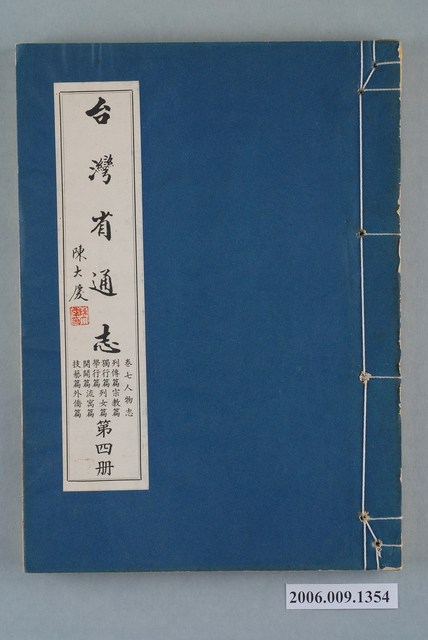 台灣省通志
陳大慶
卷七人物志
列傳篇宗教篇
獨行篇列女篇
學行篇
開闢篇流寓篇
技藝篇外僑篇
第四册
2006.009.1354